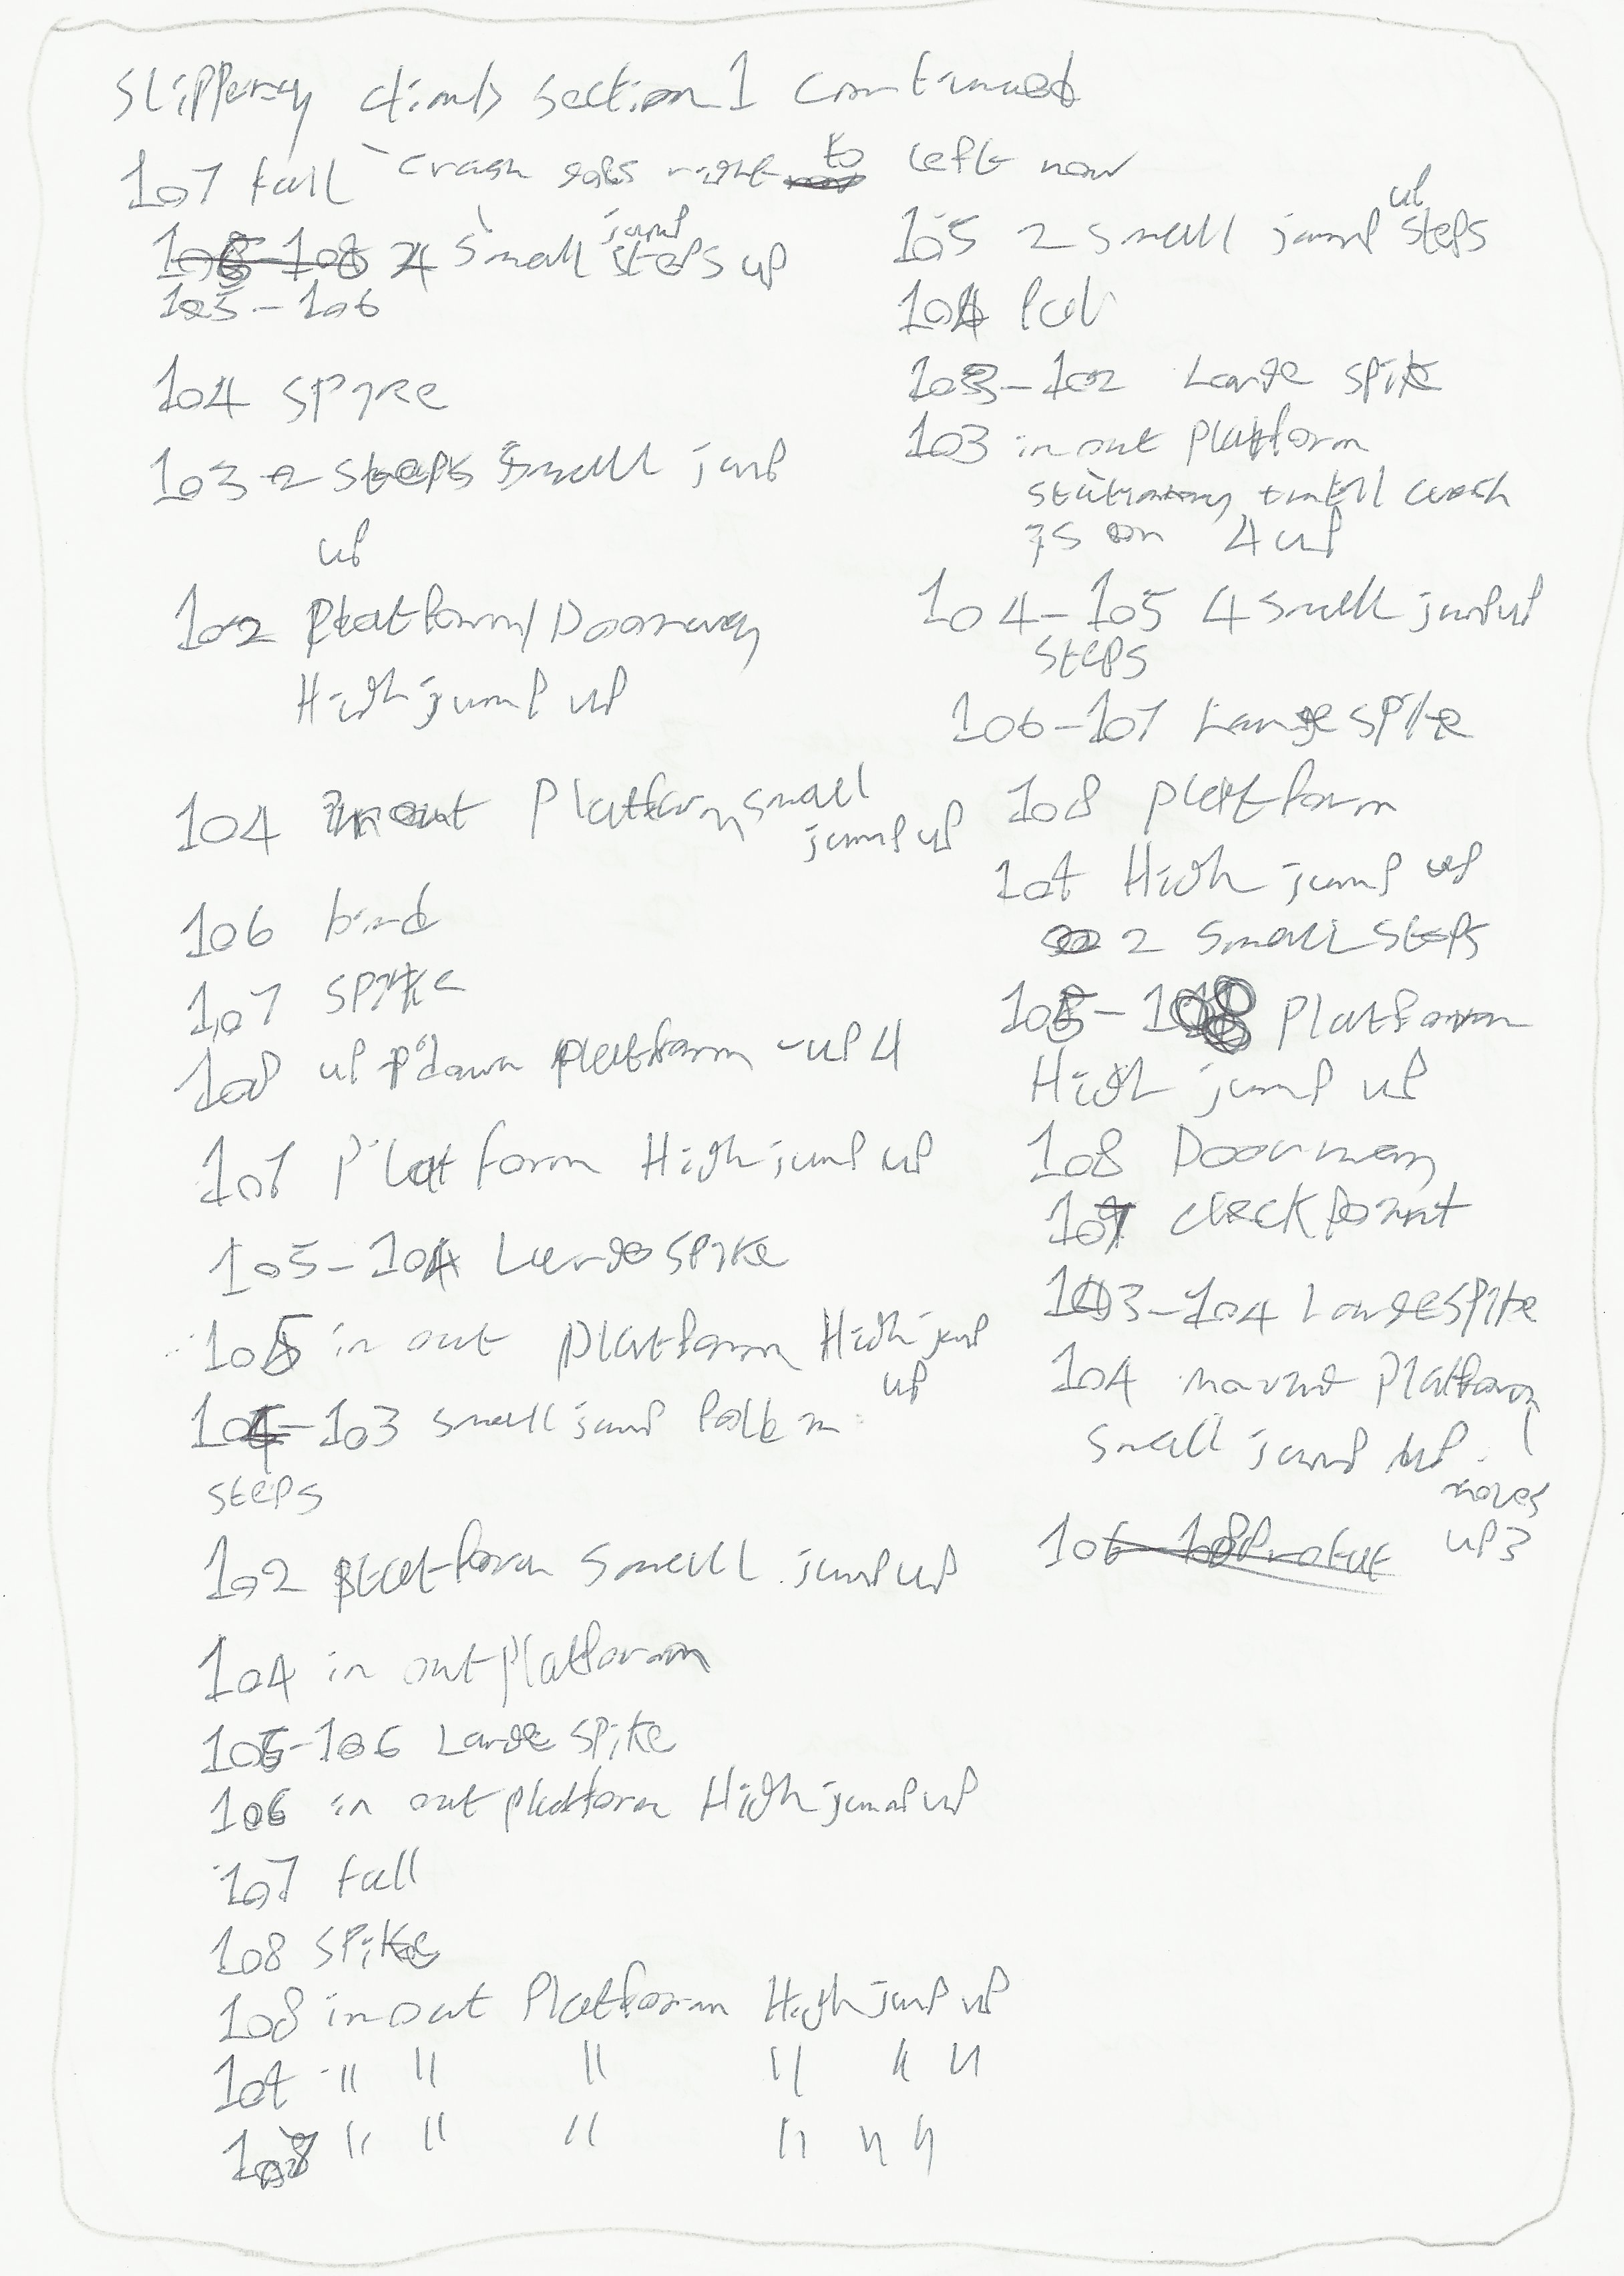 Slippery climb section 1 continued
107 fall - crash goes right to left now
4 small jump steps up
105-106
104 spike
103 2 steps small jump
up
102 Platform/Doorway
High jump up
104 in out platform small
jump up
106 bird
107 spike
108 up + down platform - up 4
107 Platform High jump up
105-104 Large spike
105 in out platform High jump
up
104-103 small jump
steps
102 platform small jump up
104 in out platform
105-106 Large spike
106 in out platform High jump up
107 fall
108 spike
108 in out Platform High jump up
10t " " " " " "
107 " " " " " "
105 2 small jump up steps
104
103-102 Large spike
103 in out platform
stationary untill crash
is on 4 up
104-105 4 small jump up
steps
106-107 Large spike
108 platform
10t High jump up
2 small steps
105-108 platform
High jump up
108 Doorway
107 checkpoint
103-104 Large spike
104 Platform
small jump up
moves
up 3